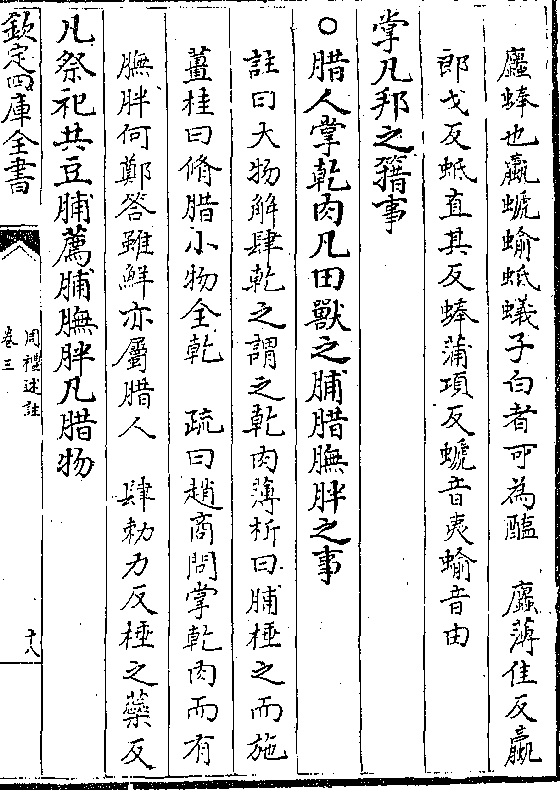 蠯蜯也蠃螔蝓蚳蟻子白者可為醢　蠯薄佳反蠃
郎戈反蚳直其反蜯蒲項反螔音夷蝓音由
掌凡邦之簎事
○腊人掌乾肉凡田獸之脯腊膴胖之事
註曰大物解肆乾之謂之乾肉薄析曰脯棰之而施
薑桂曰脩腊小物全乾　疏曰趙商問掌乾肉而有
膴胖何鄭答雖鮮亦屬腊人　肆勅力反棰之藥反
凡祭祀共豆脯薦脯膴胖凡腊物
欽定四庫全書
周禮述註
卷三
十八